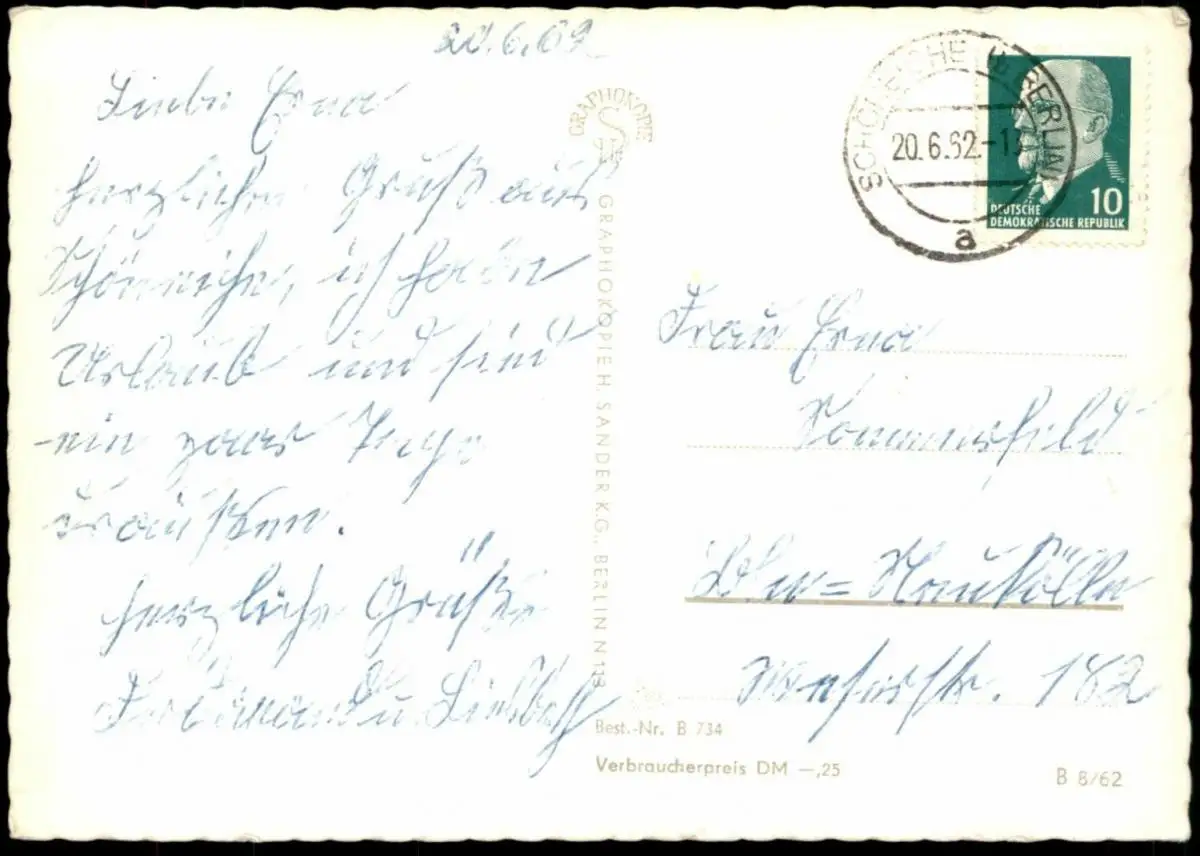 20.6.62
Liebe Erna
herzlichen Gruß aus
Schöneiche, ich habe
Urlaub und sind
ein paar Tage
draußen.
herzliche Grüße
Ferdinand u.
GRAPHOKOPIE
GRAPHOKOPIE H. SANDER K.G., BERLIN N 113
SCHÖNEICHE b BERLIN
20.6.62.-13
a
10
DEUTSCHE
DEMOKRATISCHE REPUBLIK
Frau Erna
Sommerfeld
Bln=Neukölln
Weserstr. 182
Best.-Nr. B 734
Verbraucherpreis DM –,25
B 8/62